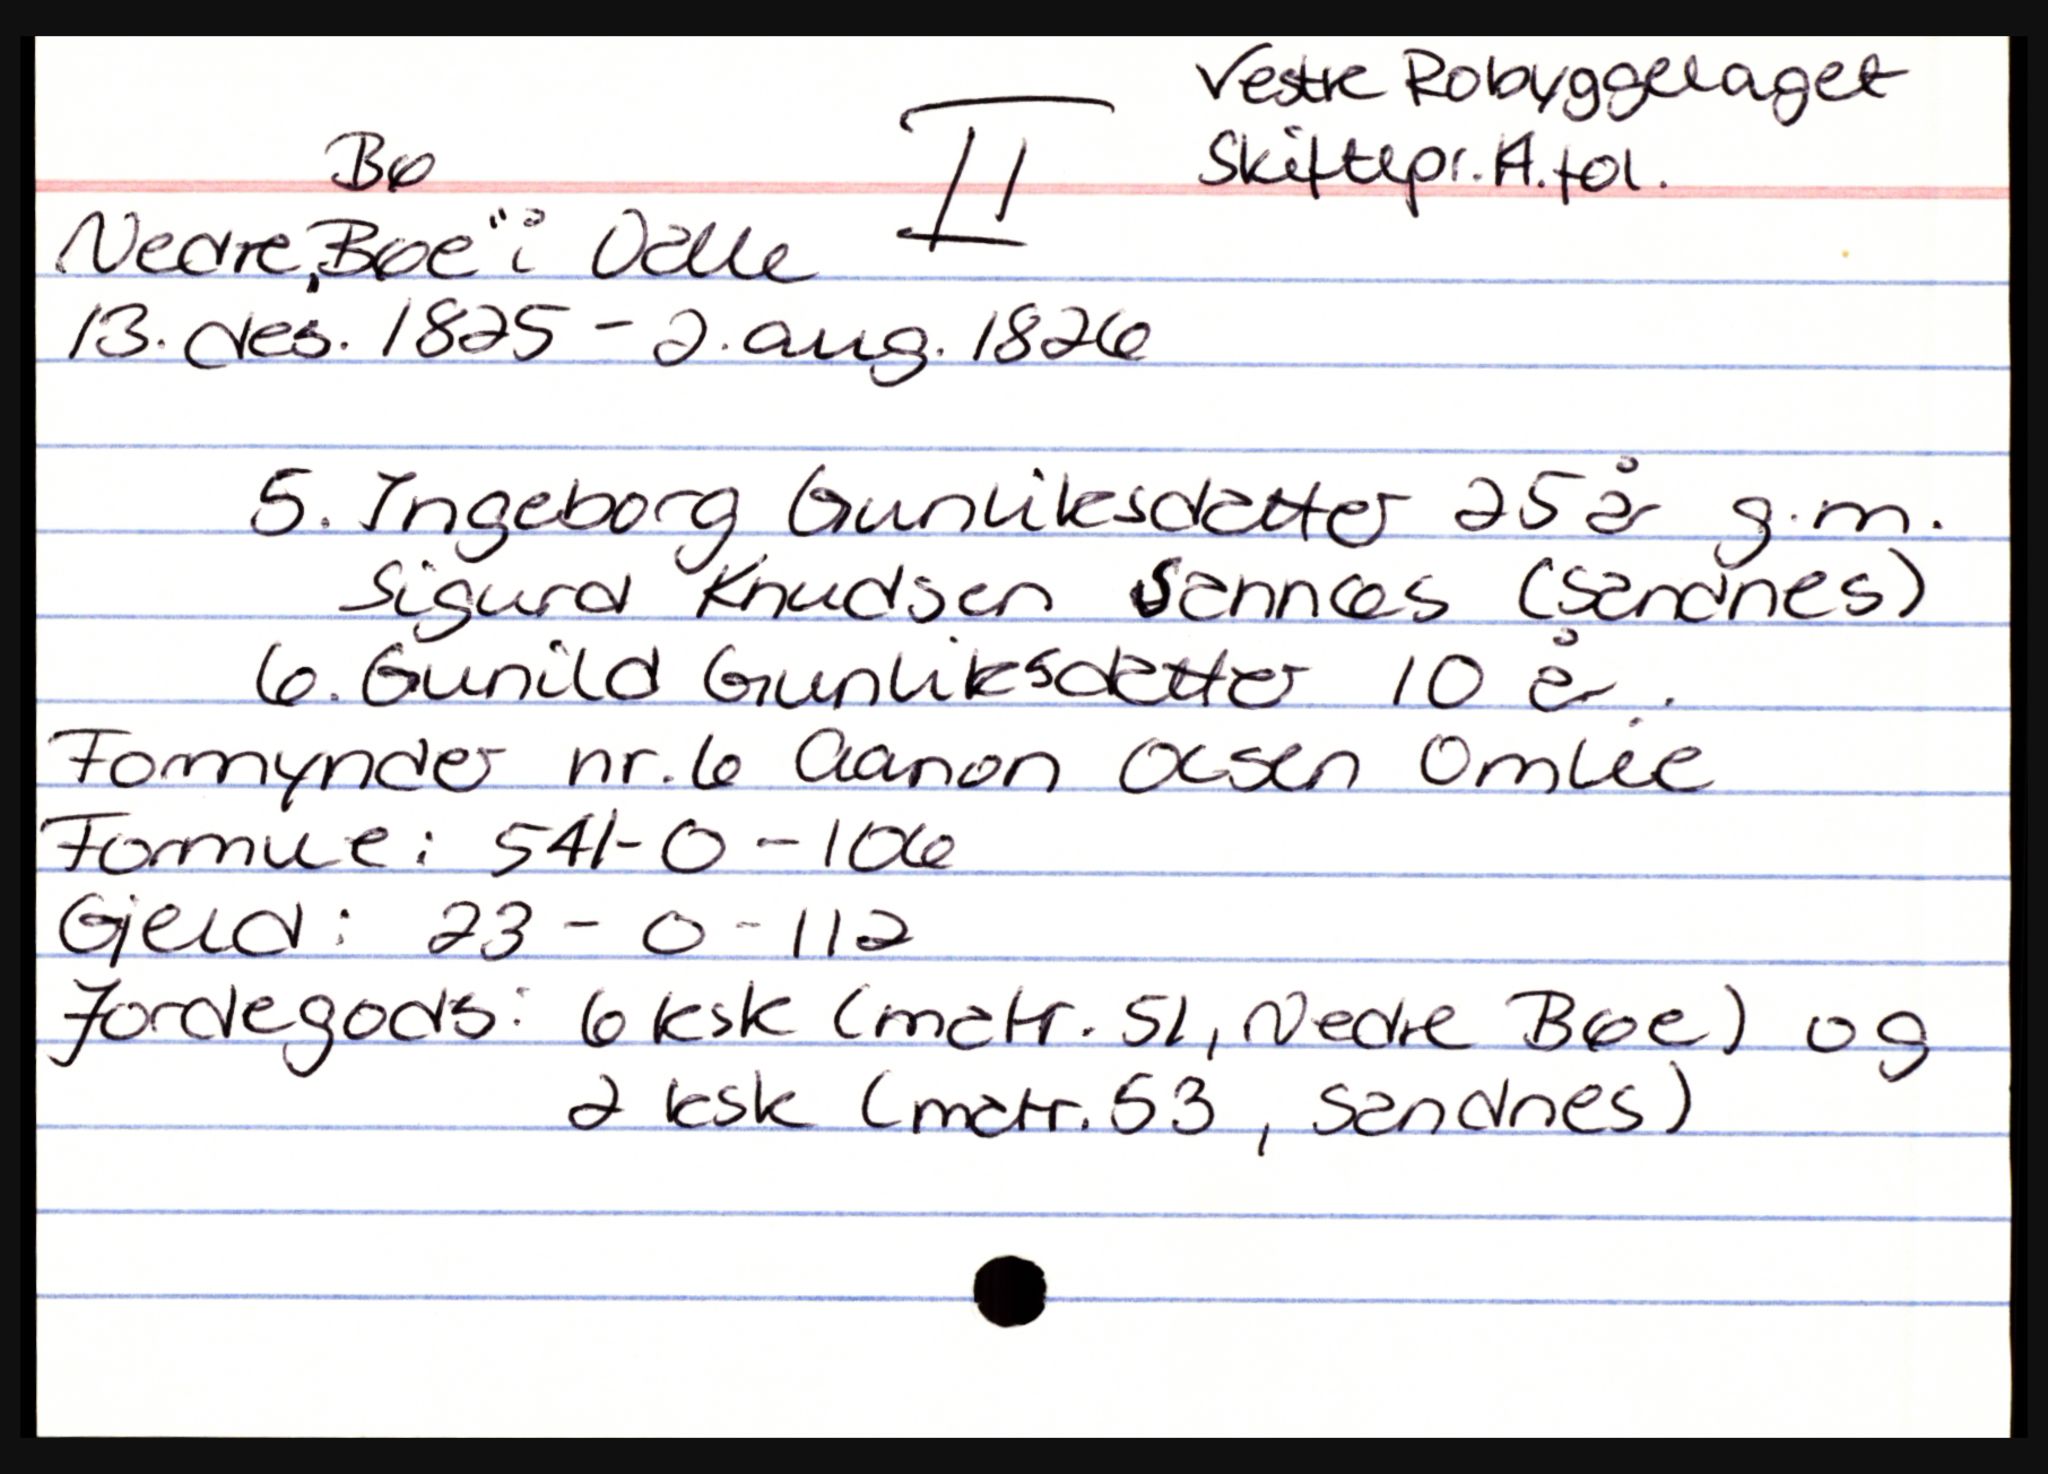 Vestre Robyggelaget
Bø II Skiftepr. A. fol.
Nedre „Bøe" i Valle
13. des. 1825 - 2. aug. 1826
5. Ingeborg Gunliksdatter 25 år g.m.
Sigurd Knudsen Sannæs (Sandnes)
6. Gunild Gunliksdatter 10 år.
Formynder nr. 6 Aanon Olsen Omlie
Formue: 541-0-106
Gjeld: 23-0-112
Jordegods: 6 ksk (matr. 51, Nedre Bøe) og
2 ksk (matr. 53, Sandnes)